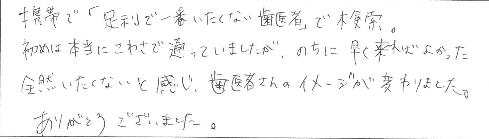 携帯で「足利で一番いたくない歯医者」で検索。
初めは本当にこわさで通っていましたが、のちに早く来ればよかった
全然いたくないと感じ、歯医者さんのイメージが変わりました。
ありがとうございました。